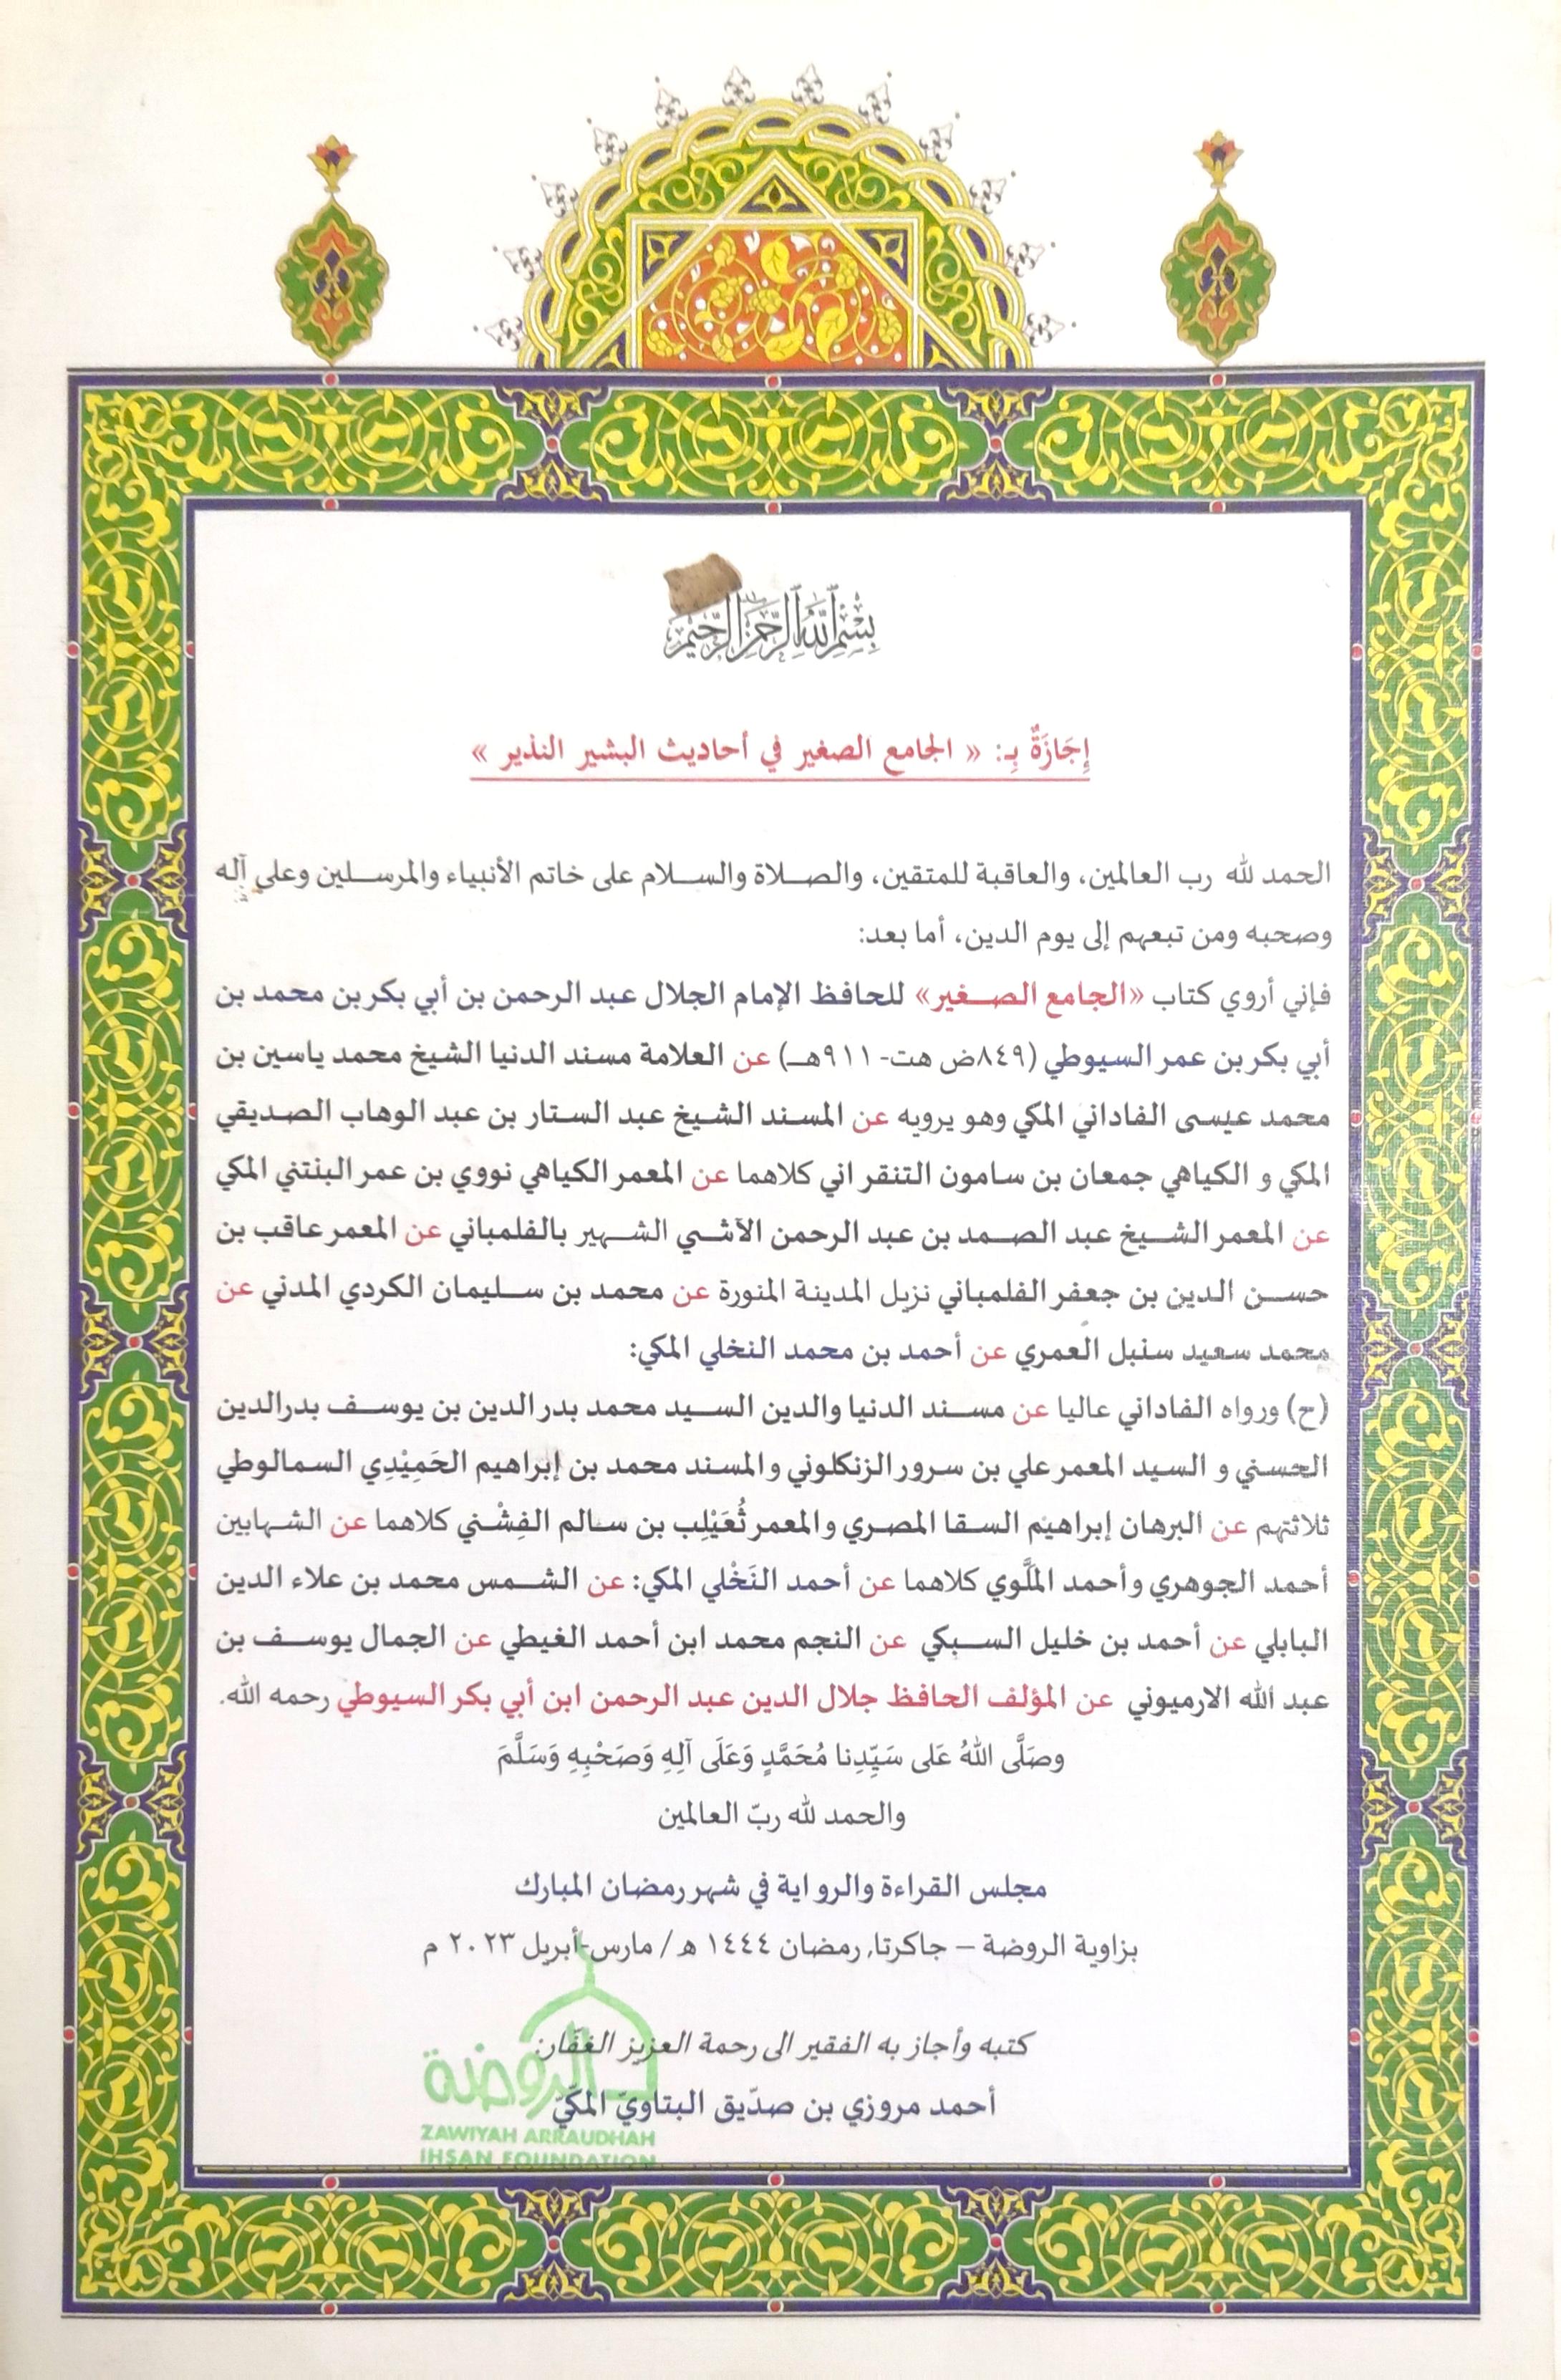 بِسْمِ اللَّهِ الرَّحْمَنِ الرَّحِيمِ
إِجَازَةٌ بِـ: « الجامع الصغير في أحاديث البشير النذير »
الحمد لله رب العالمين، والعاقبة للمتقين، والصلاة والسلام على خاتم الأنبياء والمرسلين وعلى آله
وصحبه ومن تبعهم إلى يوم الدين، أما بعد:
فإني أروي كتاب «الجامع الصغير» للحافظ الإمام الجلال عبد الرحمن بن أبي بكر بن محمد بن
أبي بكر بن عمر السيوطي (٨٤٩ض هت- ٩١١هـ) عن العلامة مسند الدنيا الشيخ محمد ياسين بن
محمد عيسى الفاداني المكي وهو يرويه عن المسند الشيخ عبد الستار بن عبد الوهاب الصديقي
المكي و الكياهي جمعان بن سامون التنقراني كلاهما عن المعمر الكياهي نووي بن عمر البنتني المكي
عن المعمر الشيخ عبد الصمد بن عبد الرحمن الآشي الشهير بالفلمباني عن المعمر عاقب بن
حسن الدين بن جعفر الفلمباني نزيل المدينة المنورة عن محمد بن سليمان الكردي المدني عن
محمد سعيد سنبل العمري عن أحمد بن محمد النخلي المكي:
(ح) ورواه الفاداني عاليا عن مسند الدنيا والدين السيد محمد بدر الدين بن يوسف بدرالدين
الحسني و السيد المعمر علي بن سرور الزنكلوني والمسند محمد بن إبراهيم الحَمِيْدِي السمالوطي
ثلاثتهم عن البرهان إبراهيم السقا المصري والمعمر ثُعَيْلِب بن سالم الفِشْني كلاهما عن الشهابين
أحمد الجوهري وأحمد المَلَّوي كلاهما عن أحمد النَخْلي المكي: عن الشمس محمد بن علاء الدين
البابلي عن أحمد بن خليل السبكي عن النجم محمد ابن أحمد الغيطي عن الجمال يوسف بن
عبد الله الارميوني عن المؤلف الحافظ جلال الدين عبد الرحمن ابن أبي بكر السيوطي رحمه الله.
وصَلَّى اللهُ عَلى سَيِّدِنا مُحَمَّدٍ وَعَلَى آلِهِ وَصَحْبِهِ وَسَلَّمَ
والحمد لله ربّ العالمين
مجلس القراءة والرواية في شهر رمضان المبارك
بزاوية الروضة – جاكرتا, رمضان ١٤٤٤ ه / مارس-أبريل ٢٠٢٣ م
كتبه وأجاز به الفقير الى رحمة العزيز الغفّار:
أحمد مروزي بن صدّيق البتاويّ المكّيّ
الروضة
ZAWIYAH ARRAUDHAH
IHSAN FOUNDATION